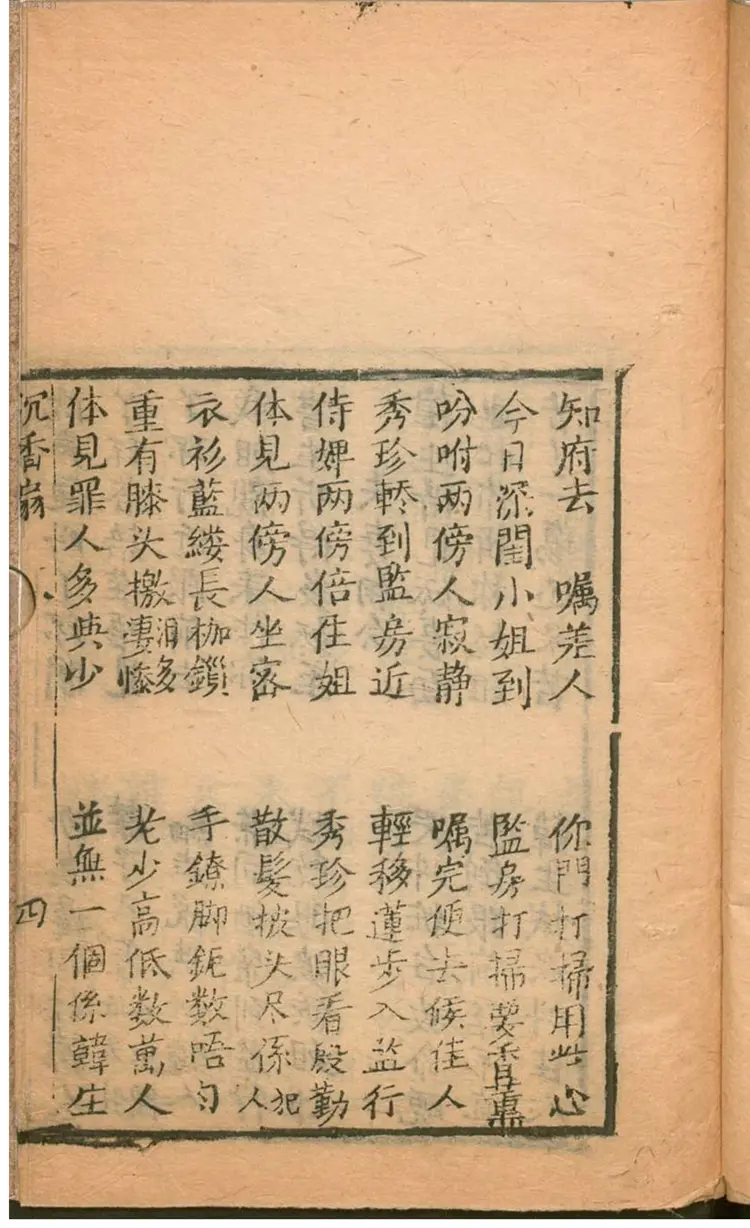 知府去　嘱差人　你門打掃用此心
今日深閨小姐到　監房打掃要香薰
吩咐両傍人寂静　嘱完便去候佳人
秀珍轎到監房近　輕移蓮步入监行
侍婢両傍倍住姐　秀珍把眼看殷勤
体見両傍人坐密　散髮披头尽係犯人
衣衫藍縷長枷鎖　手鐐脚鈪数唔匀
重有膝头撽泪多凄惨　老少高低数萬人
体見罪人多典少　並無一個係韓生
沉香扇　四